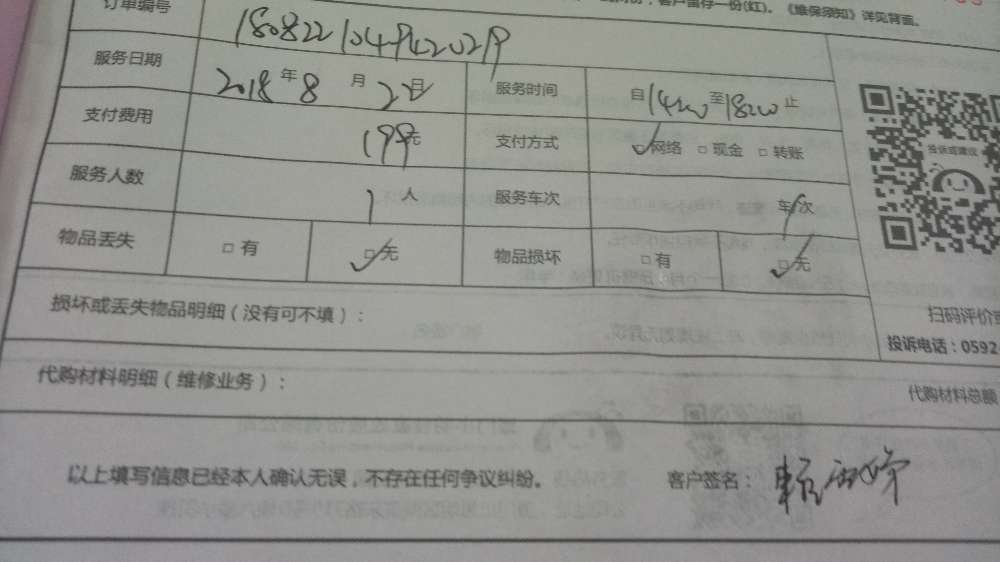 客户留存一份(红)。《维保须知》详见背面。
订单编号 180822104942029
服务日期 2018年8月22日 服务时间 自14:00至18:00止
支付费用 199元 支付方式 网络 □现金 □转账
服务人数 1人 服务车次 车次
投诉或建议
物品丢失 □有 □无 物品损坏 □有 □无
损坏或丢失物品明细（没有可不填）：
扫码评价
投诉电话：0592
代购材料明细（维修业务）：
代购材料总额
以上填写信息已经本人确认无误，不存在任何争议纠纷。 客户签名：